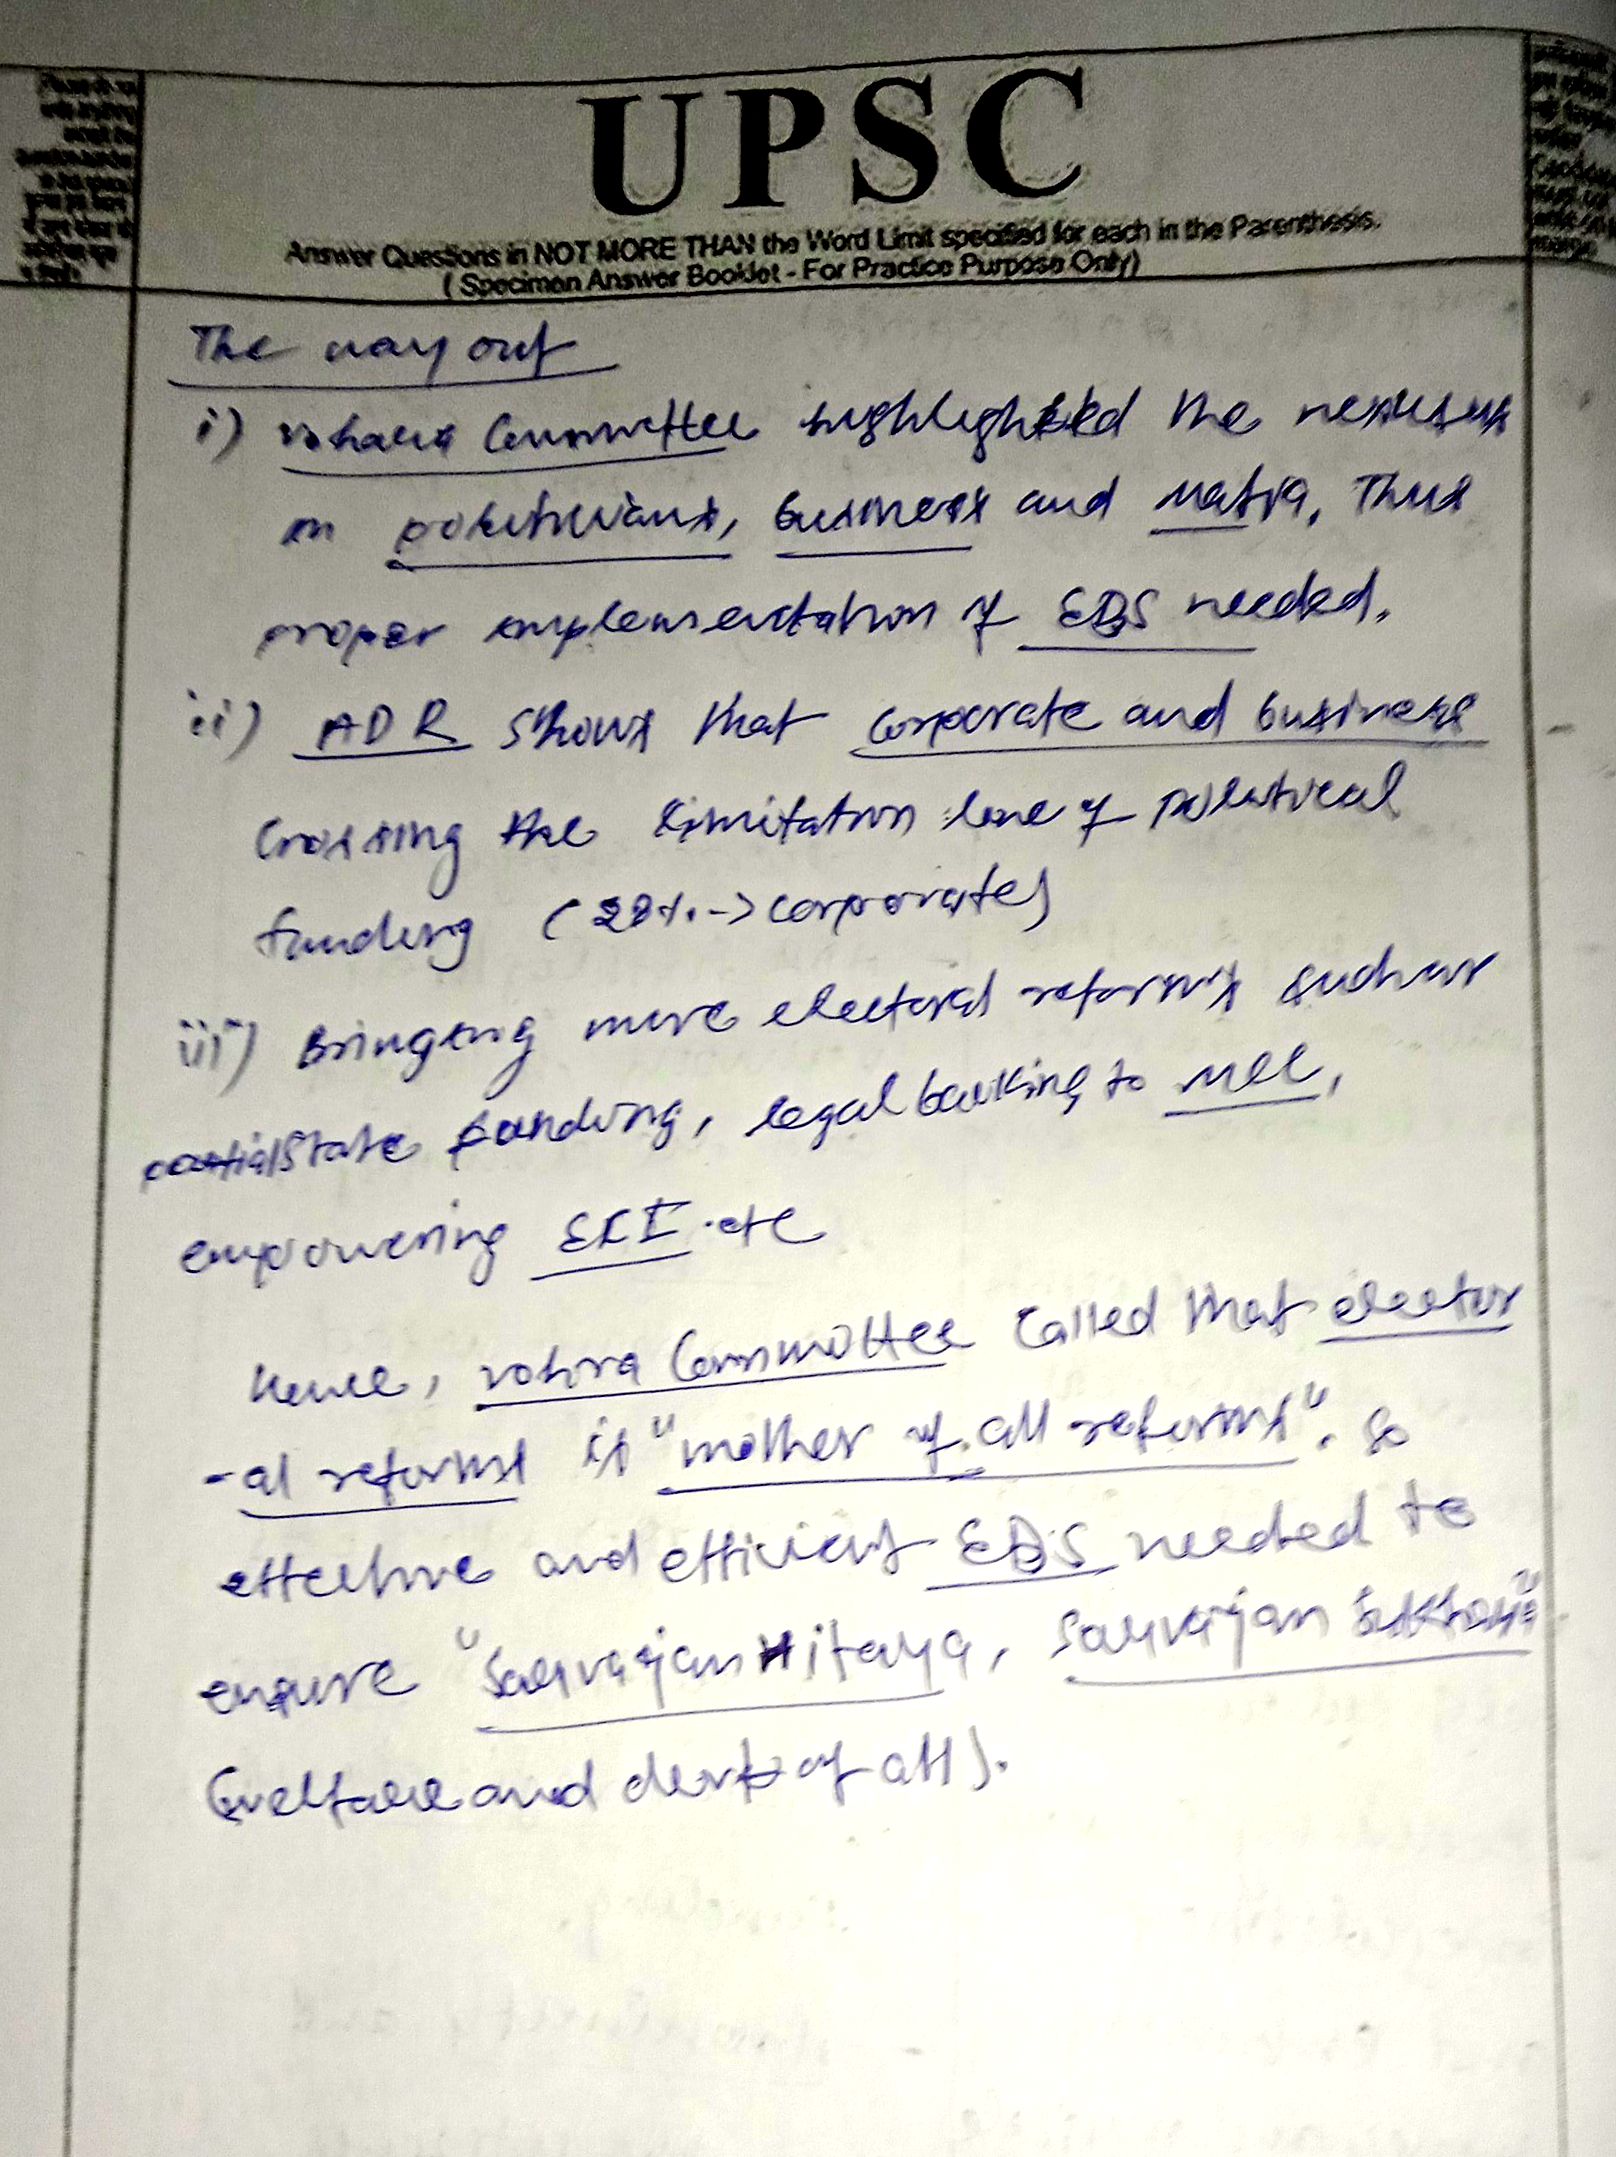 UPSC
Answer Questions in NOT MORE THAN the Word Limit specified for each in the Parenthesis.
( Specimen Answer Booklet - For Practice Purpose Only)
The way out
i) Committee highlighted the
in politicians, business and mafia. Thus
proper implementation of EBS needed.
ii) ADR shows that corporate and business
crossing the limitation line of political
funding ( % -> corporate)
iii) Bringing more electoral reforms such as
partial state funding, legal backing to MCC,
empowering ECI etc
Hence, vohra Committee called that elector
-al reforms is "mother of all reforms". So
effective and efficient EBS needed to
ensure "Sarvajan Hitaya, Sarvajan
(welfare and devt of all).